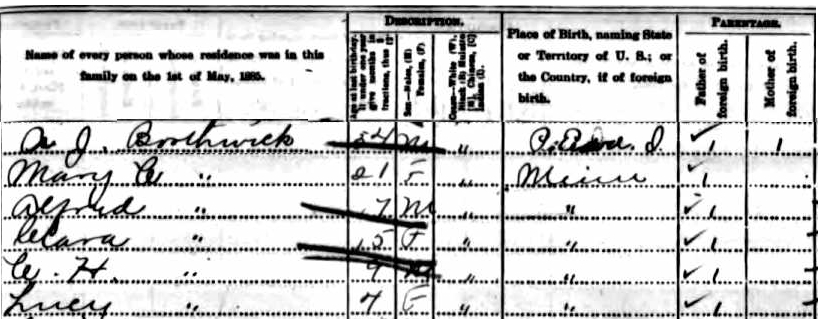 DESCRIPTION. PARENTAGE.
Name of every person whose residence was in this family on the 1st of May, 1885.
Age at last birthday. If under one year give months in fractions, thus
Sex—Males, (M) Females, (F).
Color—White (W), Black (B) Mulatto (M), Chinese, (C) Indian (I).
Place of Birth, naming State or Territory of U. S.; or the Country, if of foreign birth.
Father of foreign birth.
Mother of foreign birth.
A J. Borthwick 54 M " P. Edw. I. ✓ 1 1
Mary C " 21 F " Minn ✓ 1
Alfred " 7 M " " ✓ 1
Clara " 15 F " " ✓ 1
C. H. " 9 M " " ✓ 1
Lucy " 7 F " " ✓ 1